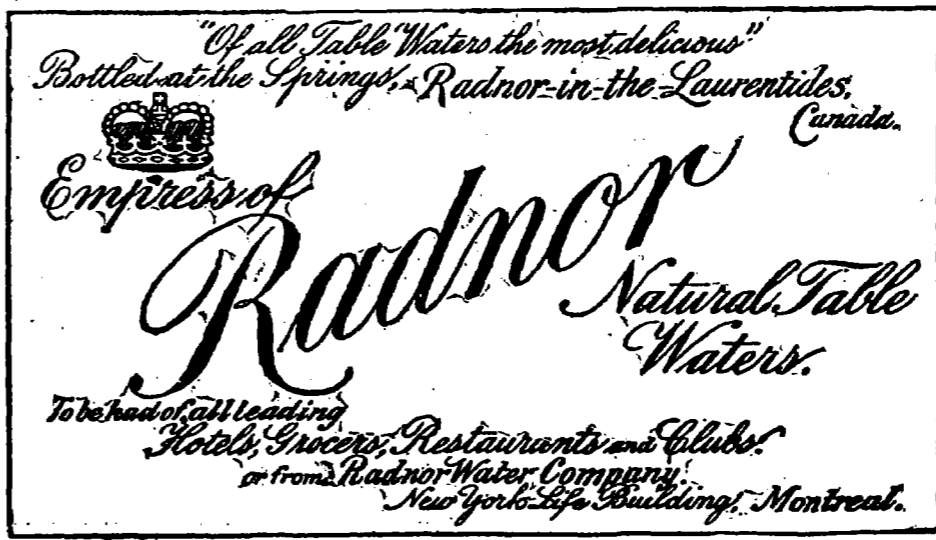 "Of all Table Waters the most delicious"
Bottled at the Springs, Radnor-in-the-Laurentides,
Canada.
Empress of
Radnor
Natural Table
Waters.
To be had of all leading
Hotels, Grocers, Restaurants and Clubs.
or from Radnor Water Company.
New York Life Building, Montreal.